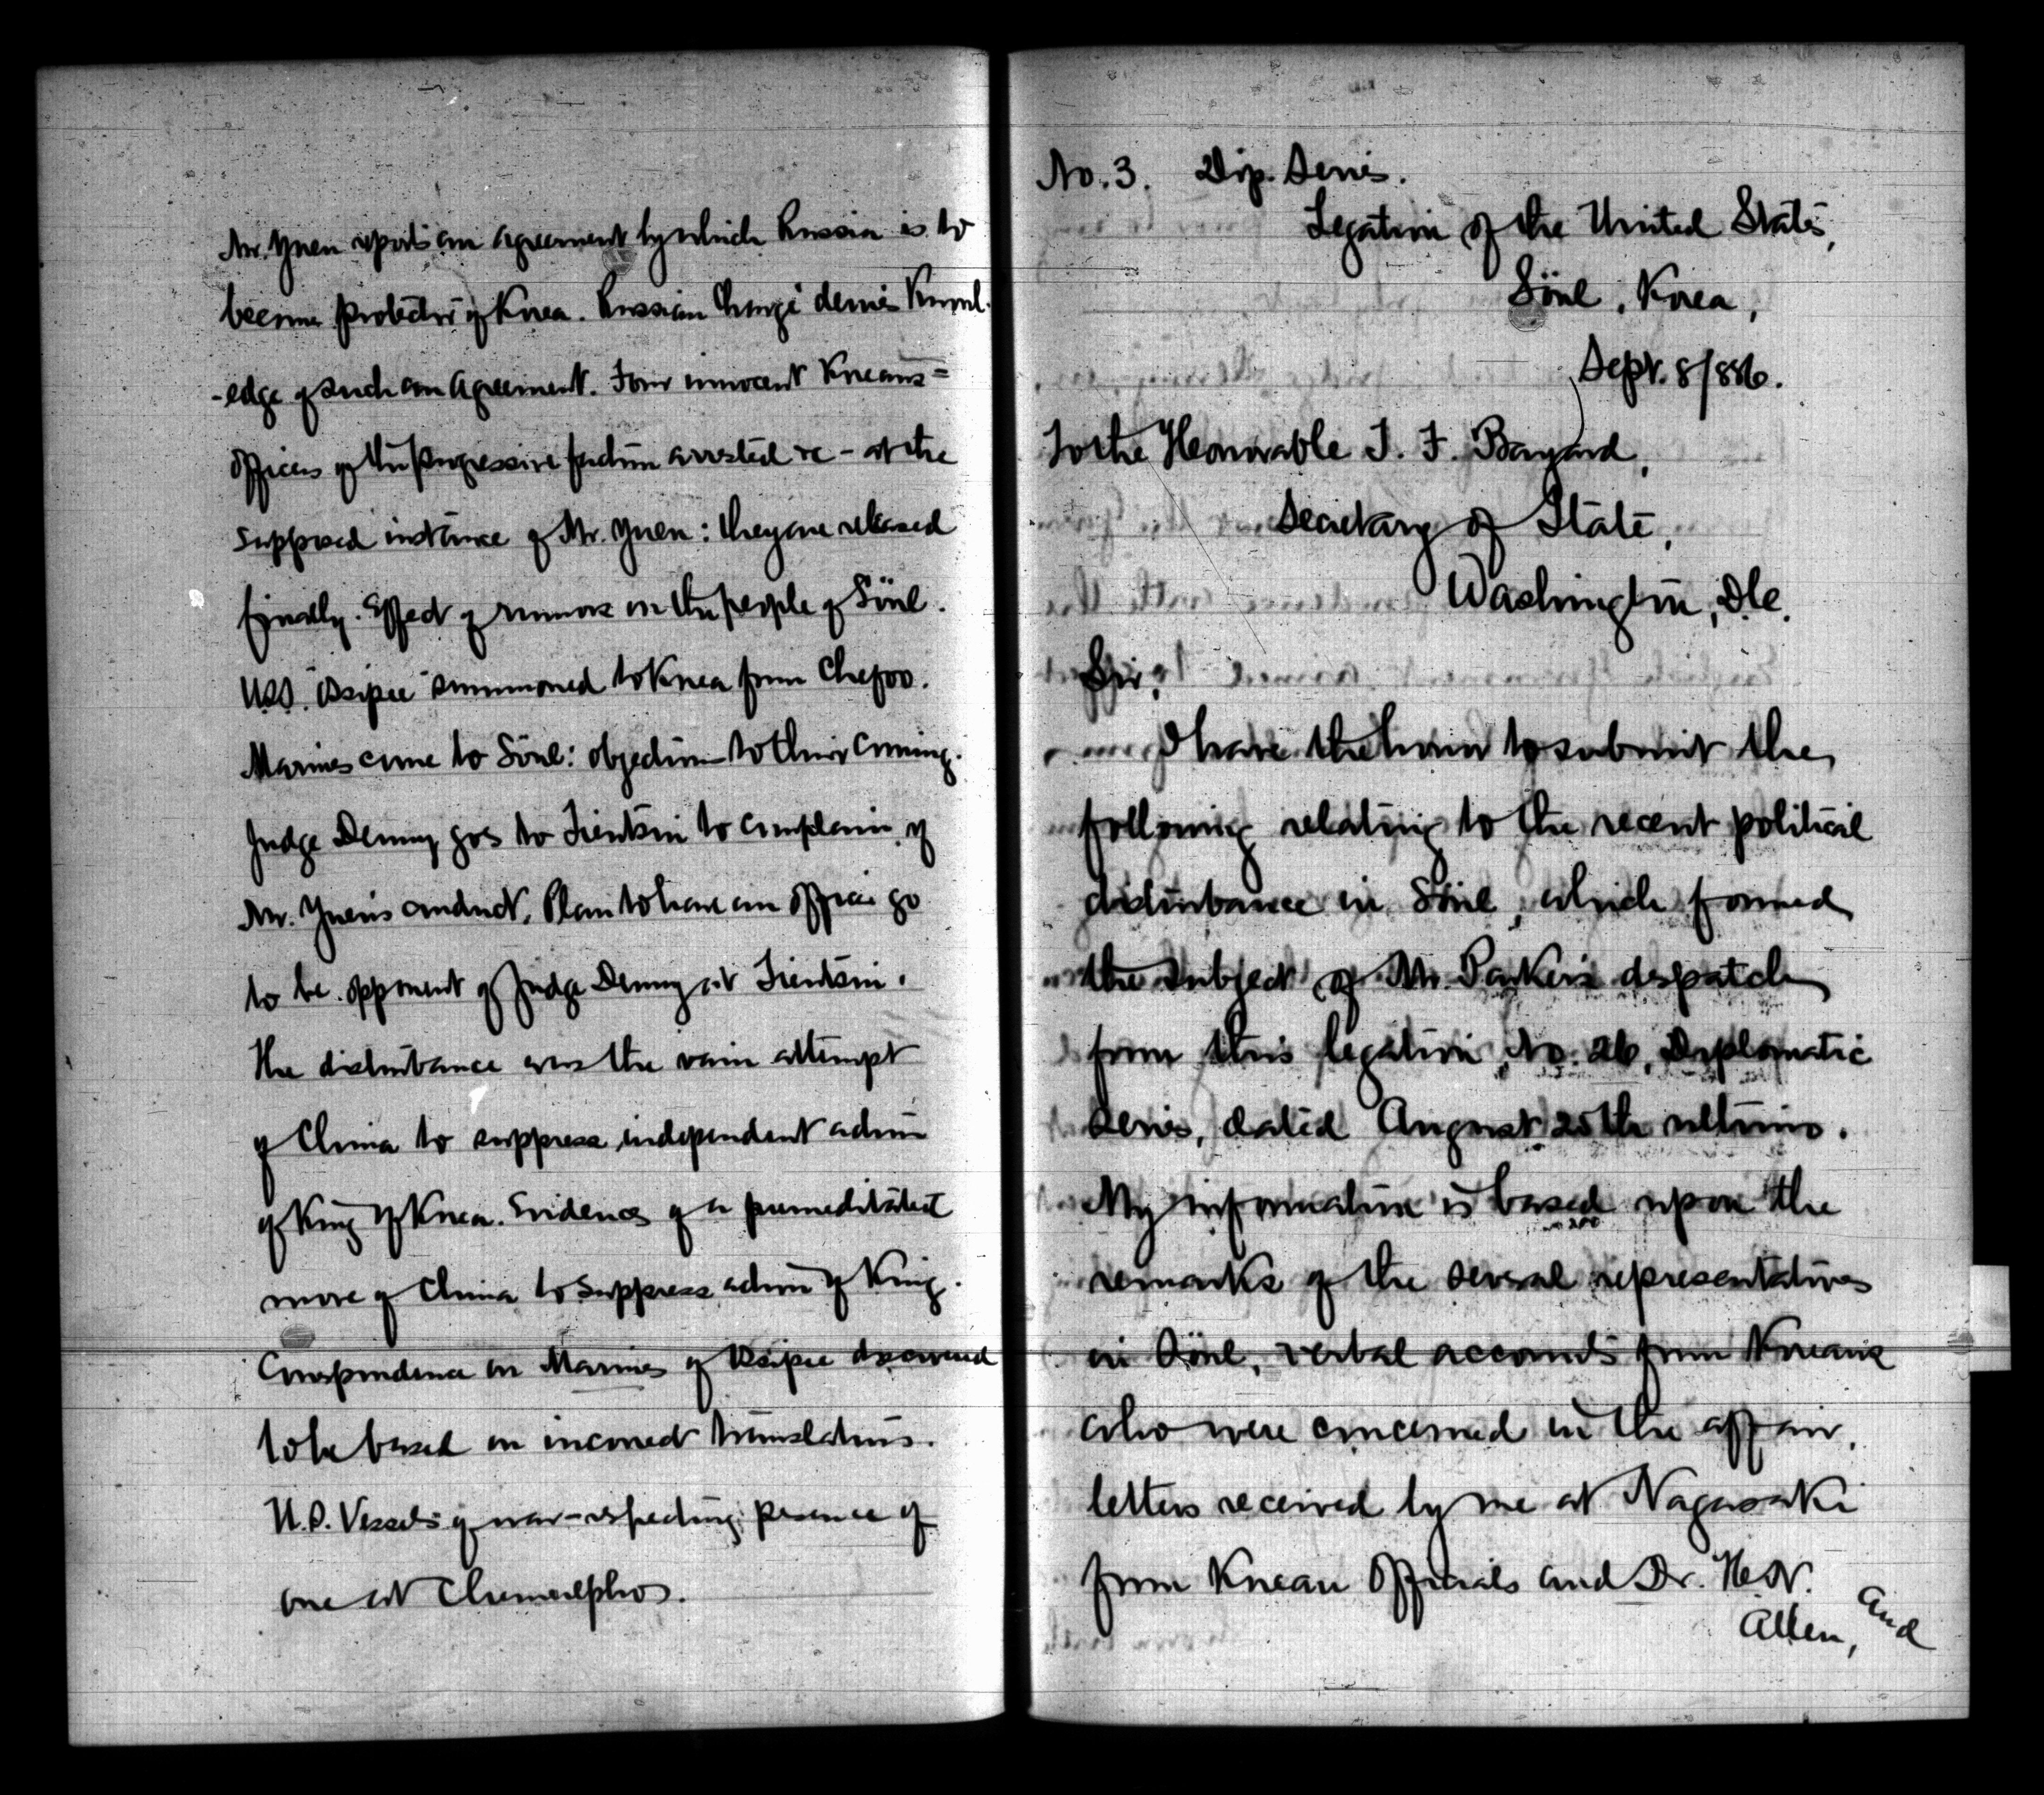 Mr. Yuen reports an agreement by which Russia is to
become protector of Korea. Russian Chargé denies Knowl-
-edge of such an agreement. Four innocent Koreans=
officers of the progressive faction arrested &c - at the
supposed instance of Mr. Yuen: they are released
finally. Effect of rumors on the people of Söul.
U.S.S. "Ossipee" summoned to Korea from Chefoo.
Marines come to Söul: objection to their coming.
Judge Denny goes to Tientsin to complain of
Mr. Yuen's conduct. Plan to have an officer go
to be opponent of Judge Denny at Tientsin.
The disturbance was the vain attempt
of China to suppress independent action
of King of Korea. Evidences of a premeditated
move of China to suppress action of King.
Correspondence on Marines of Ossipee discovered
to be based on incorrect translations.
U.S. Vessels of war - respecting presence of
one at Chemulpho.
No. 3. Dip. Series.
Legation of the United States,
Söul, Korea,
Sept. 8/886.
To the Honorable T. F. Bayard,
Secretary of State,
Washington, D.C.
Sir;
I have the honor to submit the
following relating to the recent political
disturbance in Söul, which formed
the subject of Mr. Parker's despatch
from this legation, No. 26, Diplomatic
Series, dated August 25th ultimo.
My information is based upon the
remarks of the several representatives
in Söul, verbal accounts from Koreans
who were concerned in the affair,
letters received by me at Nagasaki
from Korean Officials and Dr. H. N.
Allen, and